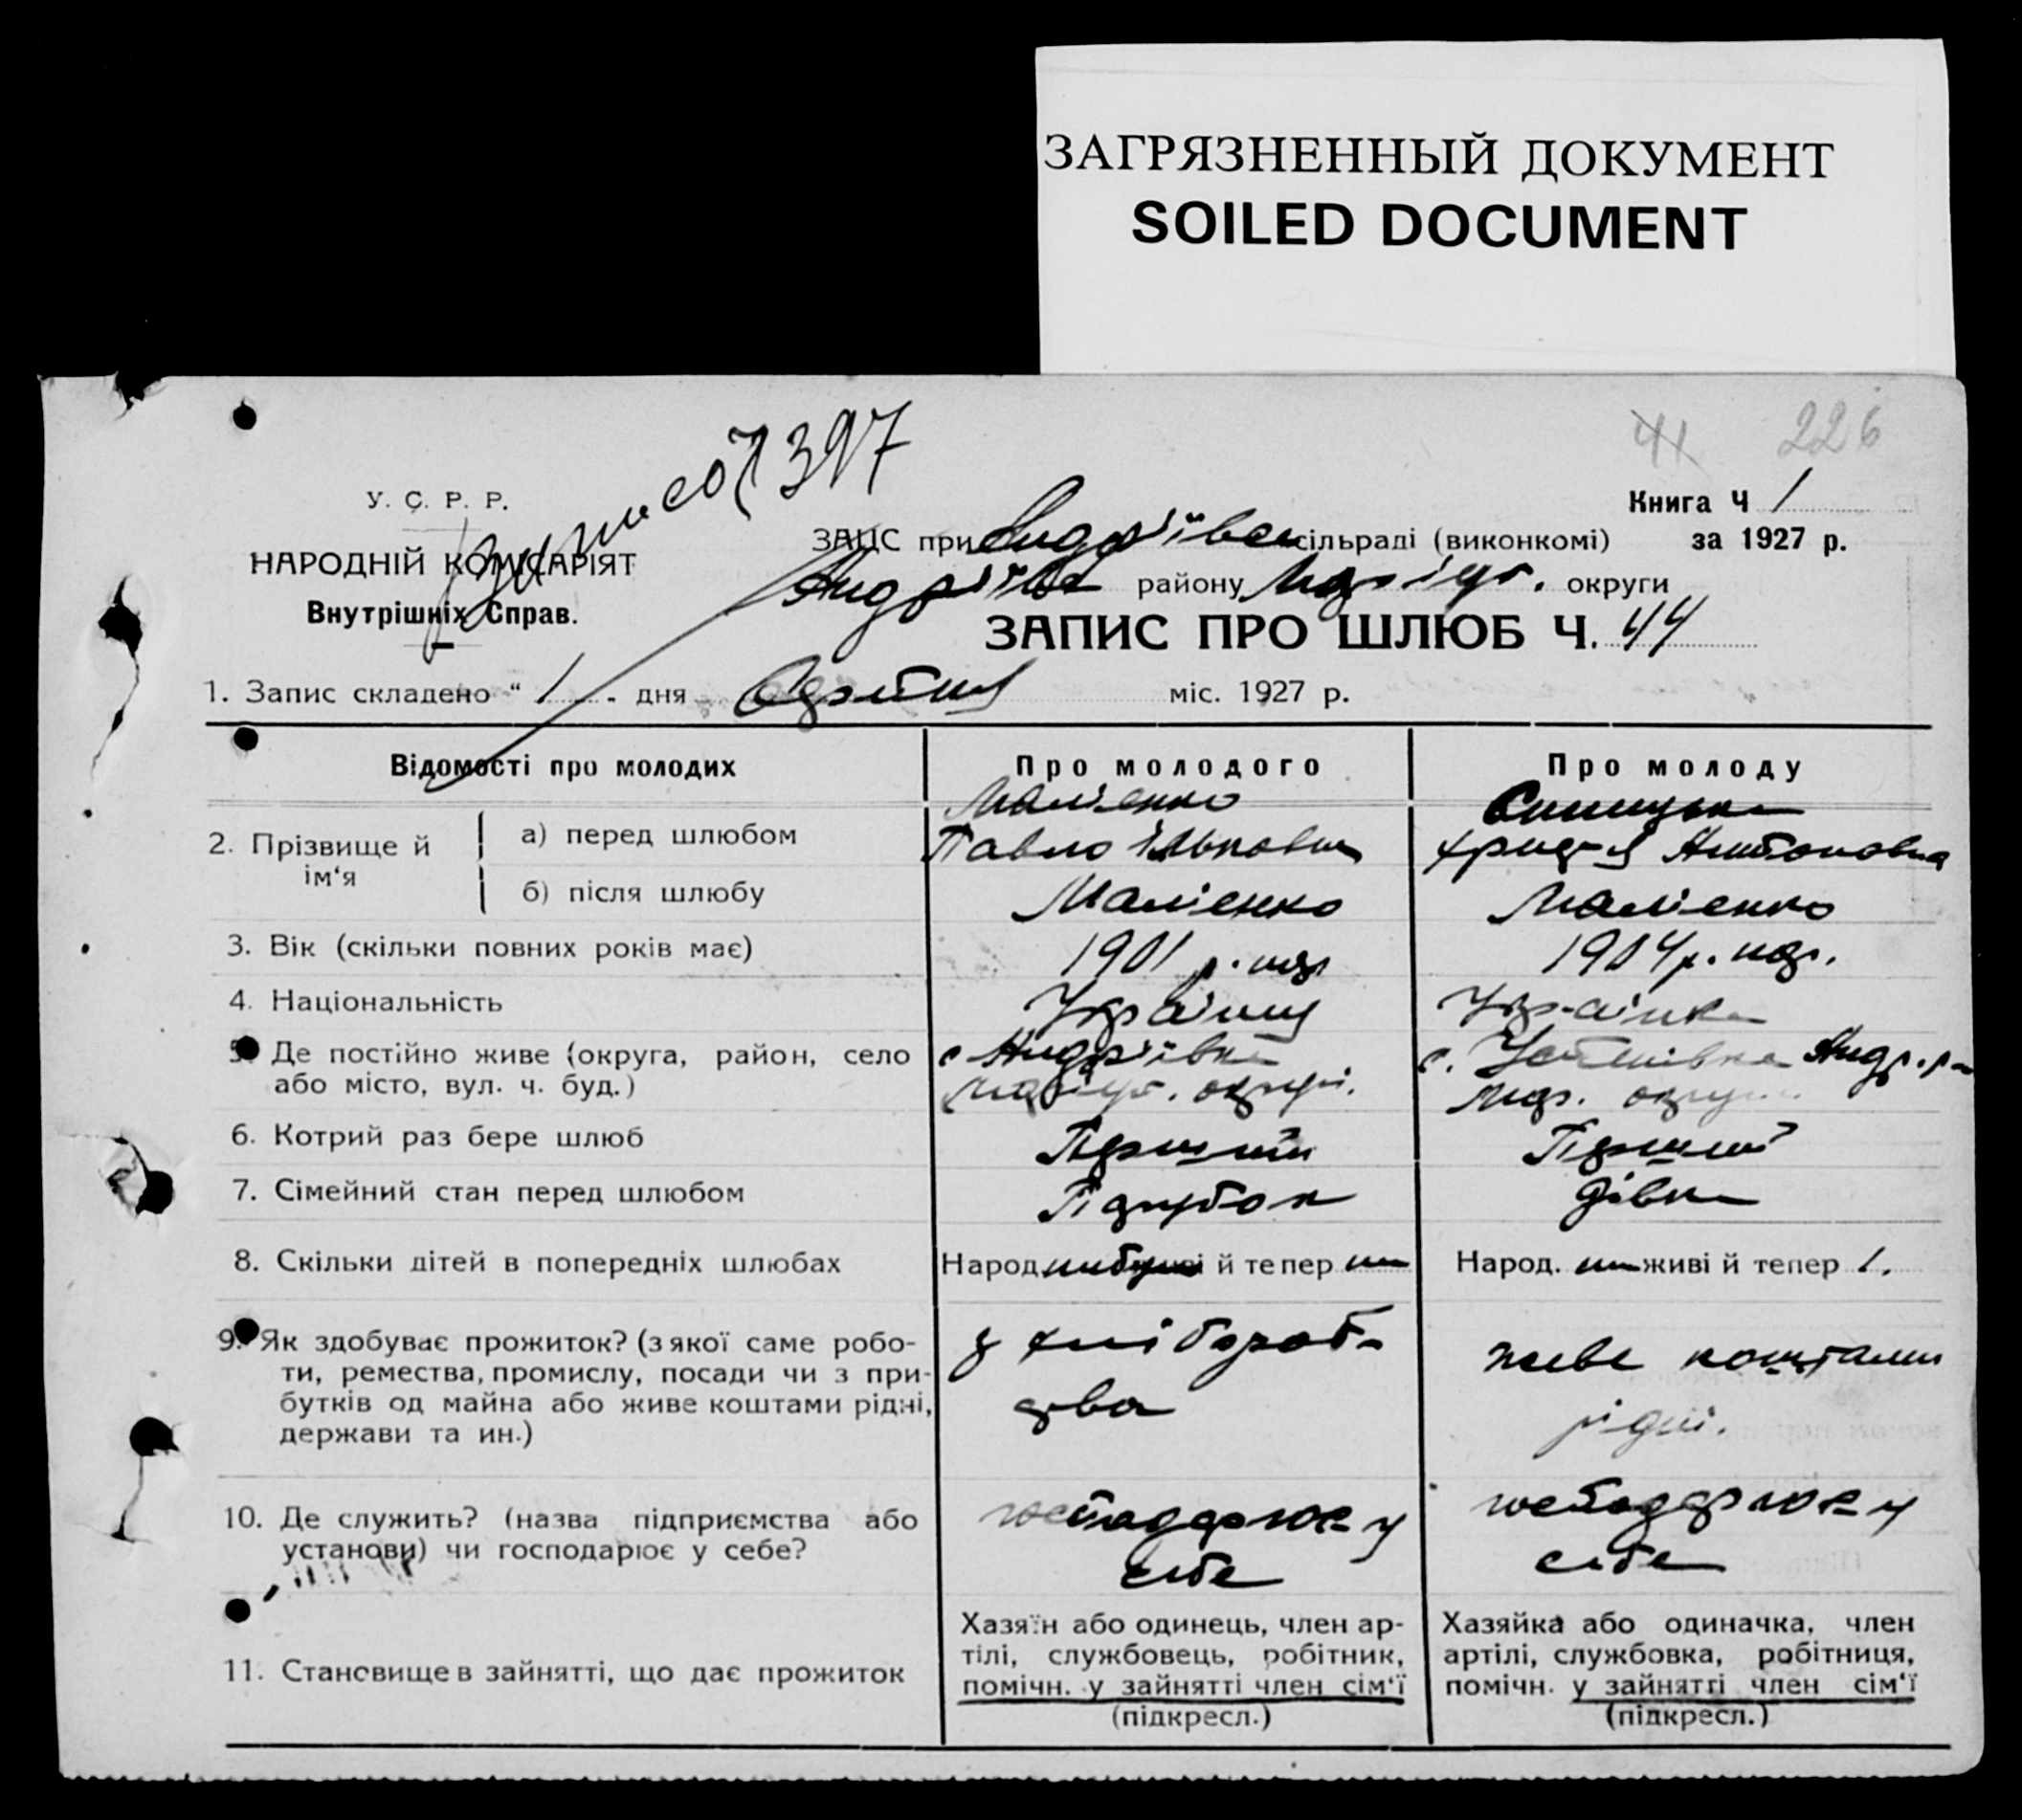 ЗАГРЯЗНЕННЫЙ ДОКУМЕНТ
SOILED DOCUMENT
41 226
397
У. С. Р. Р.
НАРОДНІЙ КОМІСАРІЯТ
Внутрішніх Справ.
Книга Ч 1
за 1927 р.
ЗАЦС при Андріївск сільраді (виконкомі)
району Маріуп. округи
ЗАПИС ПРО ШЛЮБ Ч. 44
1. Запис складено "1" дня міс. 1927 р.
Відомості про молодих
Про молодого
Про молоду
2. Прізвище й ім'я
а) перед шлюбом
Малієнко
Павло Ількович
Христя Антоновна
б) після шлюбу
Малієнко
Малієнко
3. Вік (скільки повних років має)
1901 р. нар
1904 р. нар.
4. Національність
Українець
Українка
5. Де постійно живе (округа, район, село
або місто, вул. ч. буд.)
с Андріївка
Маріуп. округи.
с. Андр. р-н
Мар. округи
6. Котрий раз бере шлюб
Перший
Перший
7. Сімейний стан перед шлюбом
Парубок
дівка
8. Скільки дітей в попередніх шлюбах
Народ й тепер
Народ. живі й тепер 1.
9. Як здобуває прожиток? (з якої саме робо-
ти, ремества, промислу, посади чи з при-
бутків од майна або живе коштами рідні,
держави та ин.)
з хлібороб-
ства
живе коштами
рідні.
10. Де служить? (назва підприємства або
установи) чи господарює у себе?
господарює у
себе
господарює у
себе
11. Становище в зайнятті, що дає прожиток
Хазяїн або одинець, член ар-
тілі, службовець, робітник,
помічн. у зайнятті член сім'ї
(підкресл.)
Хазяйка або одиначка, член
артілі, службовка, робітниця,
помічн. у зайнятті член сім'ї
(підкресл.)